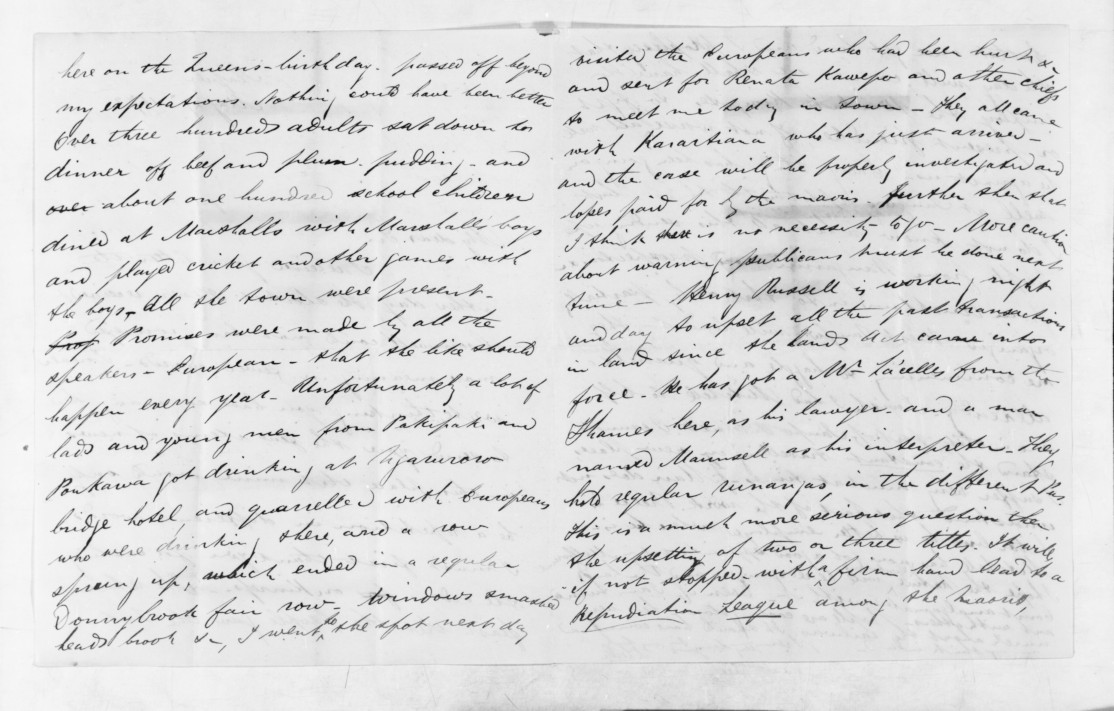 here on the Queens-birthday. passed off beyond
my expectations. Nothing could have been better
Over three hundreds adults sat down to
dinner off beef and plum. pudding. and
over about one hundred school children
dined at Marshalls with Marshalls boys
and played cricket and other games with
the boys. All the town were present.
Prof Promises were made by all the
speakers - European - that the like should
happen every year. Unfortunately a lot of
lads and young men from Pakipaki and
Poukawa got drinking at Ngaruroro
bridge hotel, and quarrelled with Europeans
who were drinking there, and a row
sprung up, which ended in a regular
Donnybrook fair row - windows smashed
heads brook &c, I went to the spot next day
visited the Europeans who had been hurt &c
and sent for Renata Kawepo and other chiefs
to meet me today in town - They all came
with Karaitiana who has just arrived -
and the case will be properly investigated and
lopes paid for by the maoris. further then that
I think there is no necessity to go - More caution
about warning publicans must be done next
time - Henry Russell is working night
and day to upset all the past transactions
in land since the lands Act came into
force. He has got a Mr Lascelles from the
Thames here, as his lawyer. and a man
named Maunsell as his interpreter. They
hold regular runangas, in the different Pas.
This is a much more serious question then
the upsetting of two or three titles. It will
if not stopped - with a firm hand lead to a
Repudiation League among the maoris,